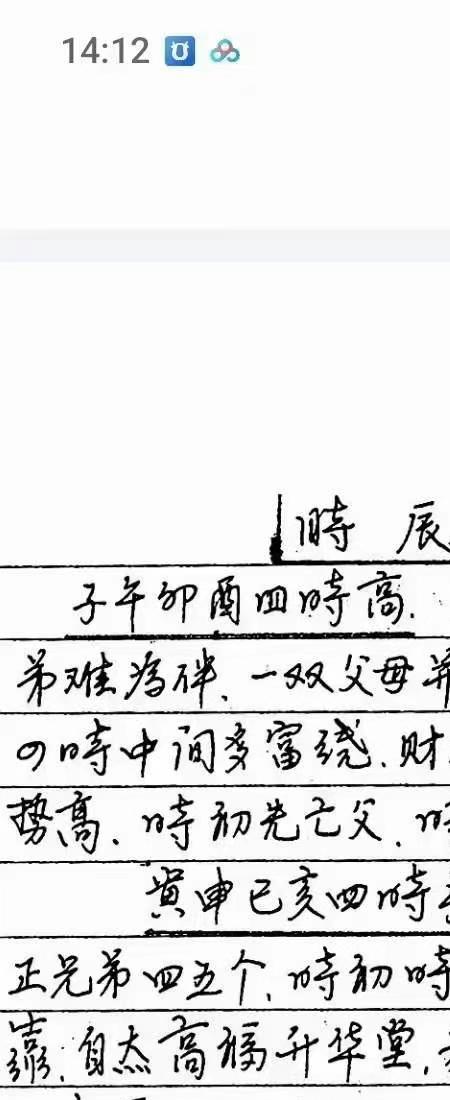 14:12
時 辰
子午卯酉四時高.
弟难為伴、一双父母
时時中间多富绕、财
势高、時初先亡父、時
寅申已亥四時
正兄弟四五个、時初時
靠、自杰高福升华堂、